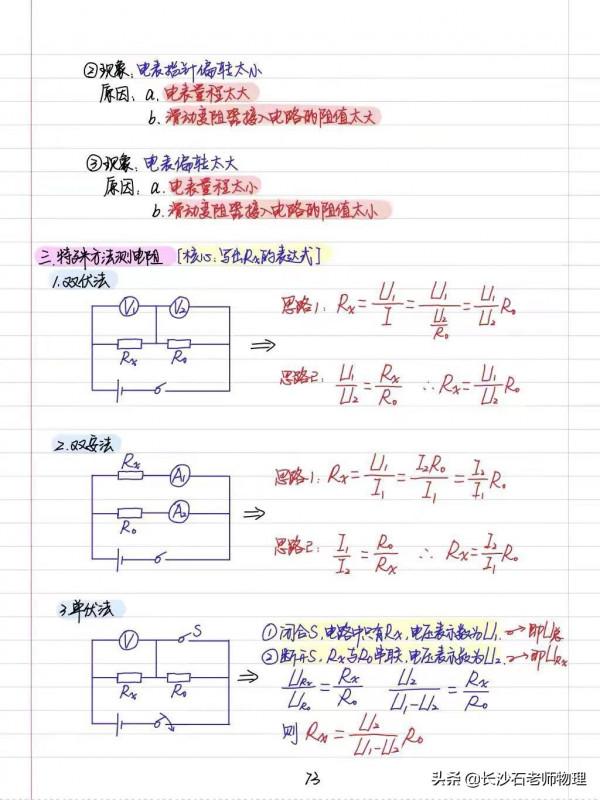 ②现象:电表指针偏转太小
原因: a. 电表量程太大
b. 滑动变阻器接入电路的阻值太大
③现象:电表偏转太大
原因: a. 电表量程太小
b. 滑动变阻器接入电路的阻值太小
三.特殊方法测电阻 [核心:写出Rx的表达式]
1.双伏法
V1 V2
Rx R0
⇒
思路1: Rx = U1/I = U1/(U2/R0) = U1/U2 R0
思路2: U1/U2 = Rx/R0 ∴ Rx = U1/U2 R0
2.双安法
Rx A1
R0 A2
⇒
思路1: Rx = U1/I1 = I2R0/I1 = I2/I1 R0
思路2: I1/I2 = R0/Rx ∴ Rx = I2/I1 R0
3.单伏法
V S
Rx R0
⇒
①闭合S,电路中只有Rx,电压表示数为U1. → 即U总
②断开S,Rx与R0串联,电压表示数为U2. → 即URx
URx/UR0 = Rx/R0 U2/U1-U2 = Rx/R0
则 Rx = U2/U1-U2 R0
73
头条 @长沙石老师物理